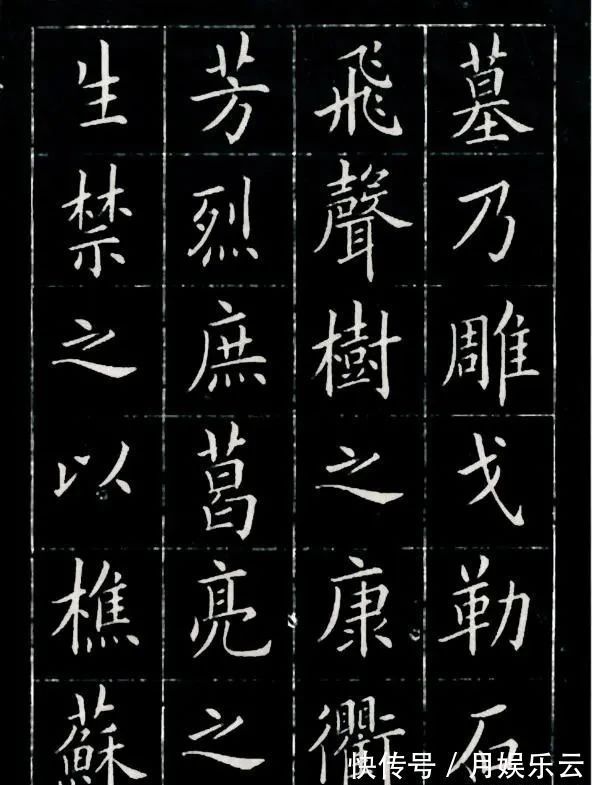 墓乃雕戈勒石
飛聲樹之康衢
芳烈庶葛亮之
生禁之以樵蘇
快传号/月娱乐云